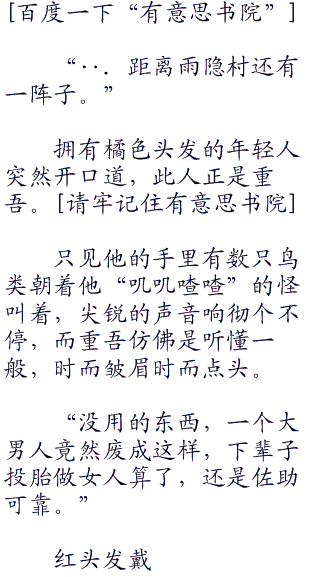 [百度一下“有意思书院”]
“··．距离雨隐村还有
一阵子。”
拥有橘色头发的年轻人
突然开口道，此人正是重
吾。[请牢记住有意思书院]
只见他的手里有数只鸟
类朝着他“叽叽喳喳”的怪
叫着，尖锐的声音响彻个不
停，而重吾仿佛是听懂一
般，时而皱眉时而点头。
“没用的东西，一个大
男人竟然废成这样，下辈子
投胎做女人算了，还是佐助
可靠。”
红头发戴